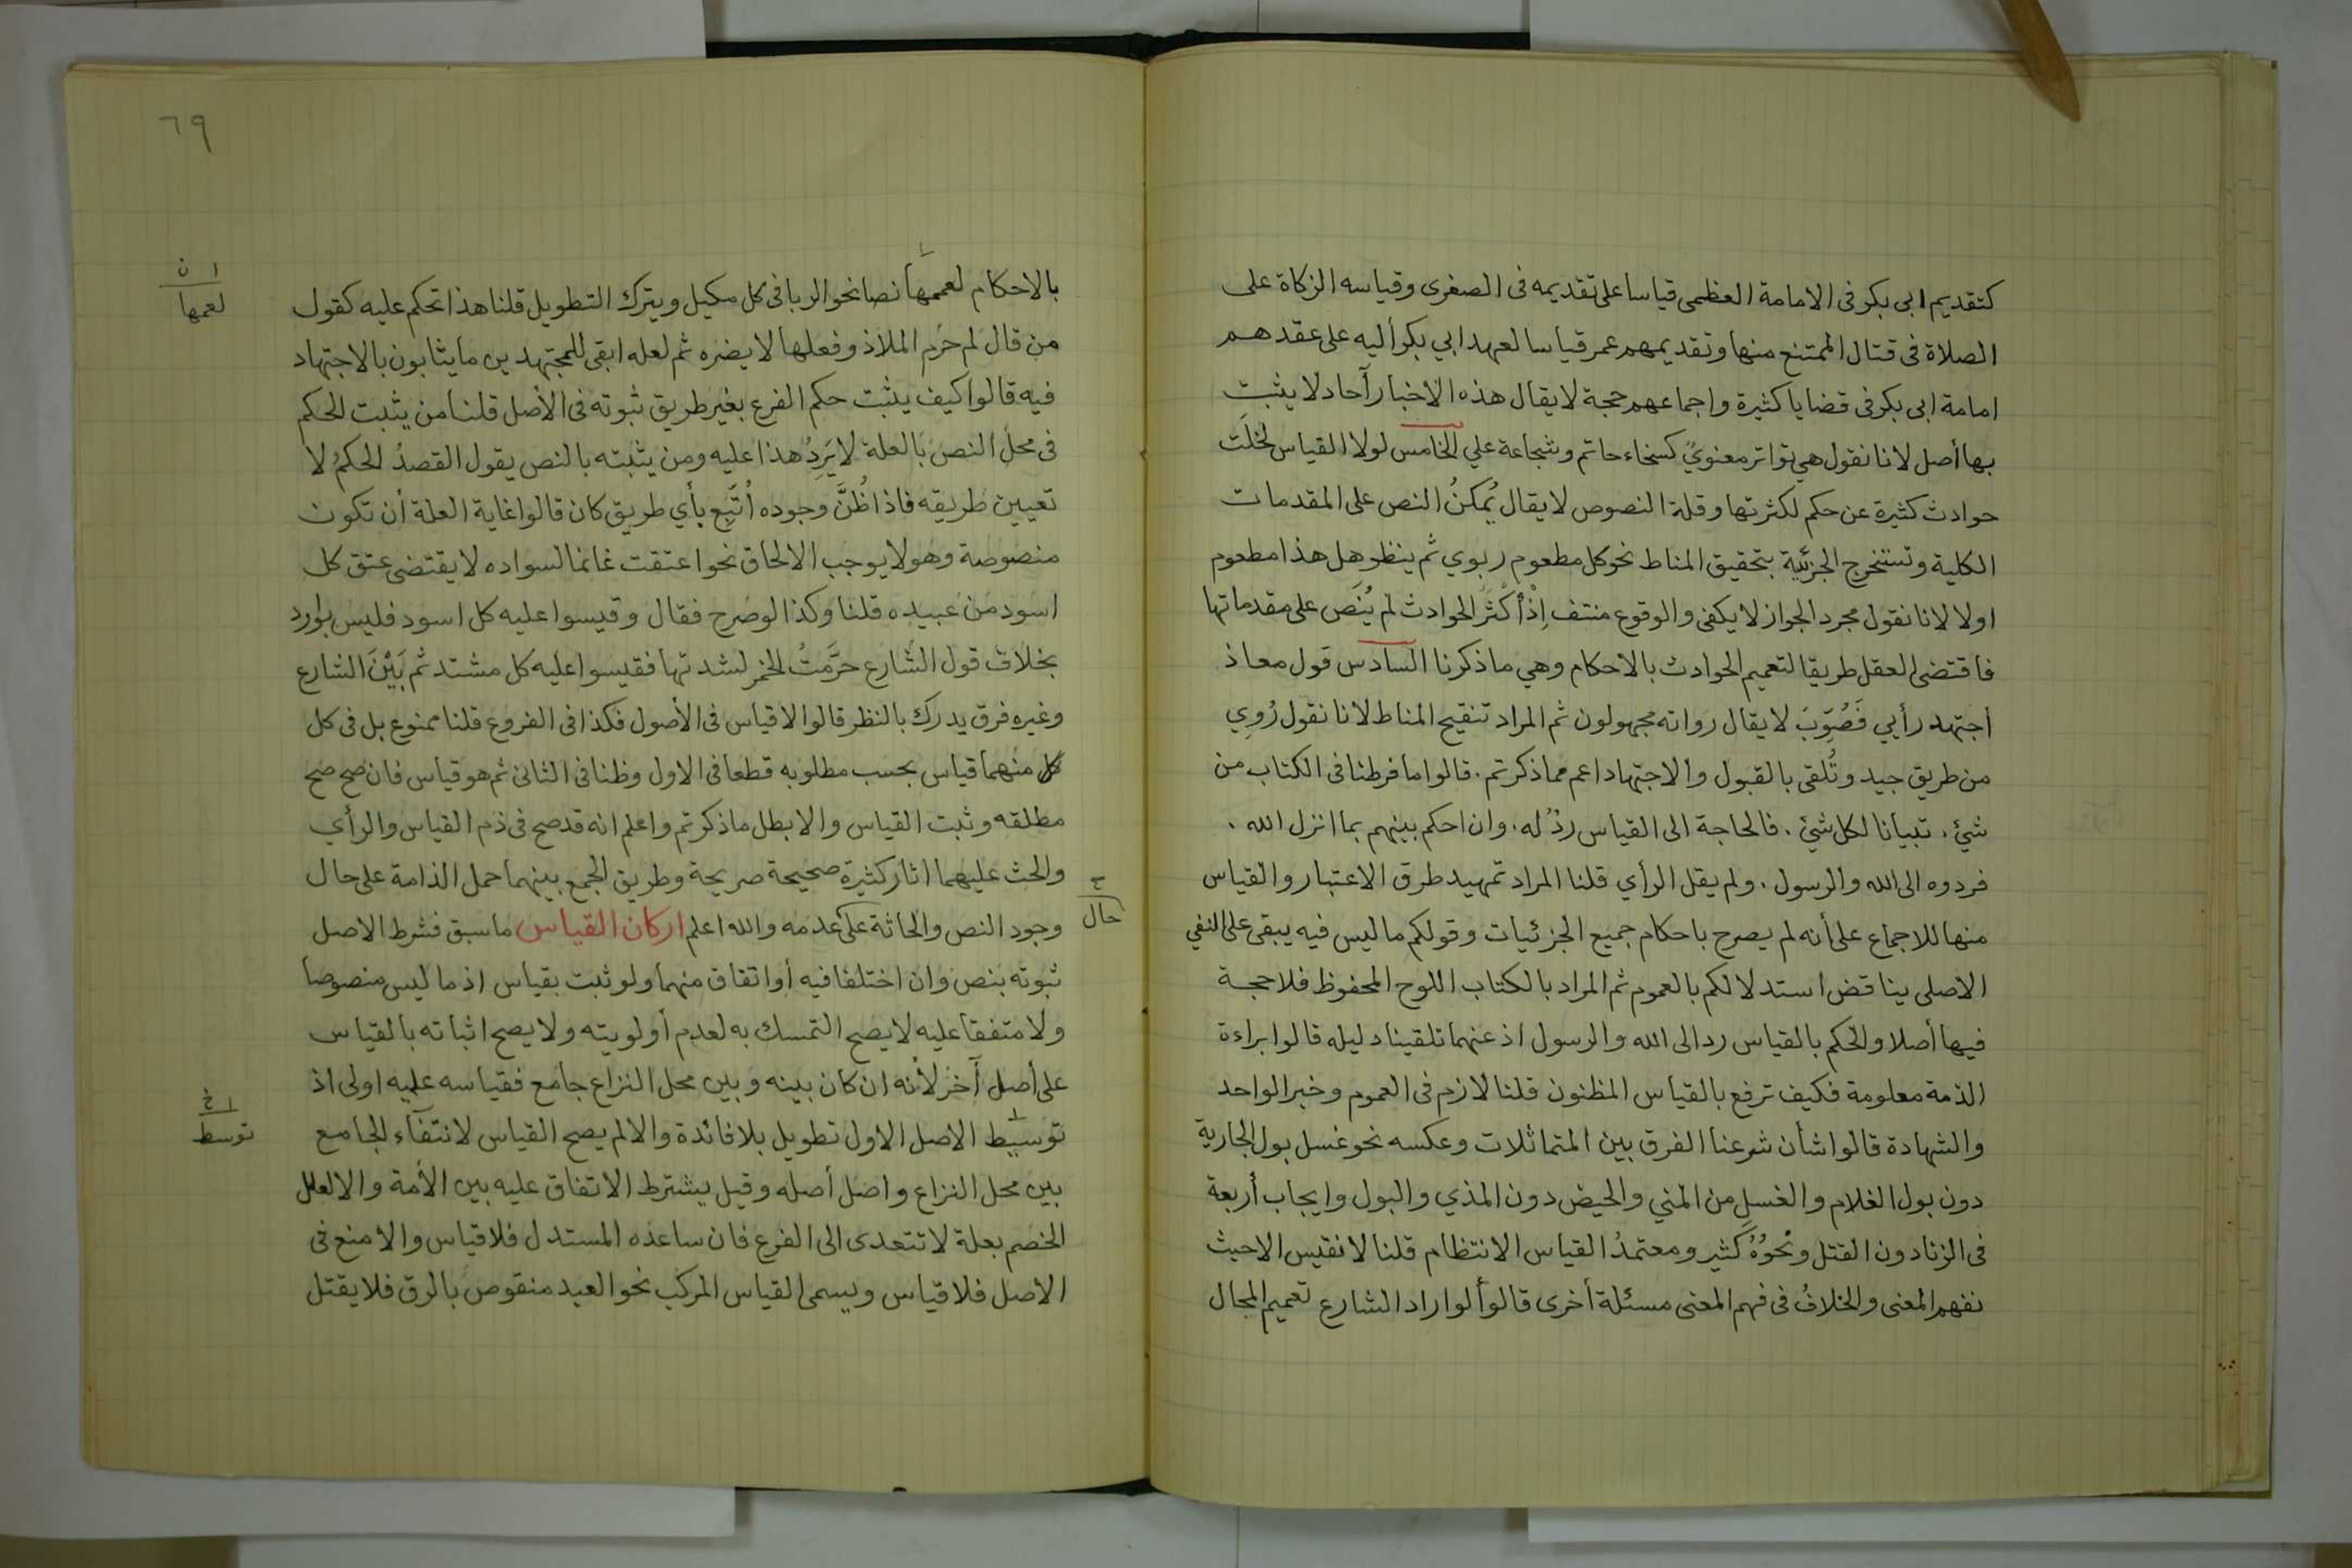 كتقديم ابى بكر فى الامامة العظمى قياسا على تقديمه فى الصغرى وقياسه الزكاة على
الصلاة فى قتال الممتنع منها وتقديمهم عمر قياسا لعهد ابي بكر أليه على عقدهم
امامة ابى بكر فى قضايا كثيرة واجماعهم حجة لا يقال هذه الاخبار آحاد لا يثبت
بها أصل لانا نقول هي تواتر معنويٌ كسخاء حاتم وشجاعة علي الخامس لولا القياس لخلَت
حوادث كثيرة عن حكم لكثرتها وقلة النصوص لا يقال يُمكنُ النص على المقدمات
الكلية وتستخرج الجزئية بتحقيق المناط نحو كل مطعوم ربوي ثم ينظر هل هذا مطعوم
اولا لانا نقول مجرد الجواز لا يكفى والوقوع منتف إِذْ أَكْثَرُ الحوادث لم يُنَص على مقدماتها
فاقتضى العقل طريقا لتعميم الحوادث بالاحكام وهي ما ذكرنا السادس قول معاذ
أجتهد رأيي فَصُوِّبَ لا يقال رواته مجهولون ثم المراد تنقيح المناط لانا نقول رُوِي
من طريق جيد وتُلقى بالقبول والاجتهاد اعم مما ذكرتم . قالوا ما فرطنا فى الكتاب من
شئ . تبيانا لكل شئ . فالحاجة الى القياس ردٌ له . وان احكم بينهم بما انزل الله .
فردوه الى الله والرسول . ولم يقل الرأي قلنا المراد تمهيد طرق الاعتبار والقياس
منها للاجماع على أنه لم يصرح باحكام جميع الجزئيات وقولكم ما ليس فيه يبقى على النفي
الاصلى يناقض استدلالكم بالعموم ثم المراد بالكتاب اللوح المحفوظ فلا حجة
فيها أصلا والحكم بالقياس رد الى الله والرسول اذ عنهما تلقينا دليله قالوا براءة
الذمة معلومة فكيف ترفع بالقياس المظنون قلنا لازم فى العموم وخبر الواحد
والشهادة قالوا شأن شرعنا الفرق بين المتماثلات وعكسه نحو غسل بول الجارية
دون بول الغلام والغسل من المني والحيض دون المذي والبول وايجاب أربعة
فى الزنا دون القتل ونَحوُهُ كثير ومعتمدُ القياس الانتظام قلنا لا نقيس الا حيث
نفهم المعنى والخلافُ فى فهم المعنى مسئلة أخرى قالوأ لو اراد الشارع تعميم المجال
٦٩
بالاحكام لعممها نصا نحو الربا فى كل مكيل ويترك التطويل قلنا هذا تحكم عليه كقول
ا ن
لعمها
من قال لم حَرم الملاذ وفعلها لا يضره ثم لعله ابقى للمجتهدين ما يثابون بالاجتهاد
فيه قالوا كيف يثبت حكم الفرع بغير طريق ثبوته فى الأصل قلنا من يثبت الحكم
فى محل النص بالعلة لا يَرِدُ هذا عليه ومن يثبته بالنص يقول القصدُ الحكمُ لا
تعيين طريقه فاذا ظُنَّ وجوده أتَّبِع بأي طريق كان قالوا غاية العلة أن تكون
منصوصة وهو لا يوجب الالحاق نحو اعتقت غانما لسواده لا يقتضى عتق كل
اسود من عبيده قلنا وكذا لو صرح فقال وقيسوا عليه كل اسود فليس بوارد
بخلاف قول الشارع حرَّمتُ الخمر لشدتها فقيسوا عليه كل مشتد ثم بَيْنَ الشارع
وغيره فرق يدرك بالنظر قالوا لا قياس فى الأصول فكذا فى الفروع قلنا ممنوع بل فى كل
كل منهما قياس بحسب مطلوبه قطعا فى الاول وظنا فى الثانى ثم هو قياس فان صح صح
مطلقه وثبت القياس والا بطل ما ذكرتم واعلم انه قد صح فى ذم القياس والرأي
والحث عليهما اثار كثيرة صحيحة صريحة وطريق الجمع بينهما حمل الذامة على حال
ح
حال
وجود النص والحاثة على عدمه والله اعلم اركان القياس ما سبق فشرط الاصل
ثبوته بنص وان اختلفا فيه أو اتفاق منهما ولو ثبت بقياس اذ ما ليس منصوصا
ولا متفقا عليه لا يصح التمسك به لعدم أولويته ولا يصح اثباته بالقياس
على أصل آخر لأنه ان كان بينه وبين محل النزاع جامع فقياسه عليه اولى اذ
توسيط الاصل الاول تطويل بلا فائدة والا لم يصح القياس لانتفآء الجامع
ا خ
توسط
بين محل النزاع واصل أصله وقيل يشترط الاتفاق عليه بين الأمة والا لعلل
الخصم بعلة لا تتعدى الى الفرع فان ساعده المستدل فلا قياس والا منع فى
الاصل فلا قياس ويسمى القياس المركب نحو العبد منقوص بالرق فلا يقتل